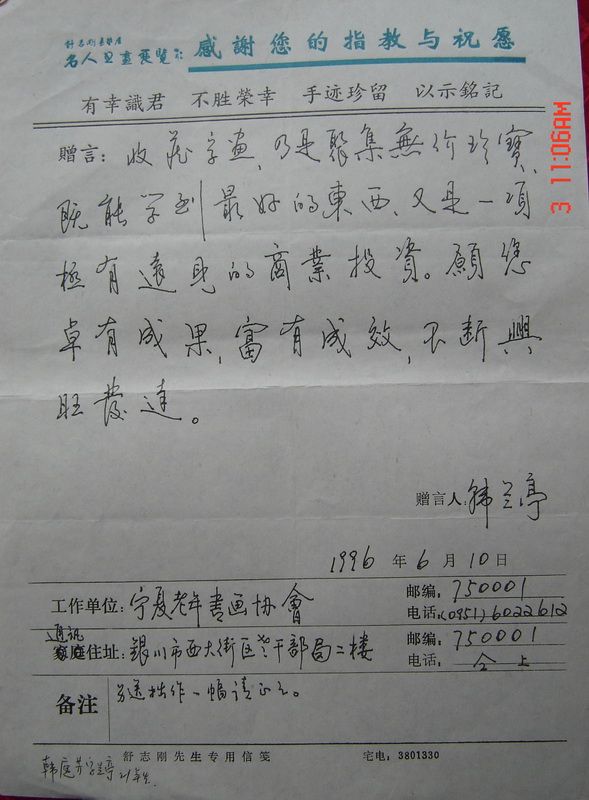 舒志刚
名人书画展览
感謝您的指教与祝愿
有幸識君 不胜榮幸 手迹珍留 以示銘記
贈言: 收藏字畫,乃是聚集無价珍寶、
既能学到最好的東西、又是一項
極有遠見的商業投資。願您
卓有成果,富有成效,不断興
旺發達。
赠言人: 韩兰亭
1996 年 6 月 10 日
工作单位: 宁夏老年書画协會
邮编: 750001
电话: (0951)6022612
通訊
家庭住址: 銀川市西大街区老干部局二楼
邮编: 750001
电话: 仝上
备注 另送拙作一幅请正之。
舒志刚先生专用信笺 宅电: 3801330
韩庭芳字兰亭
3 11:09AM